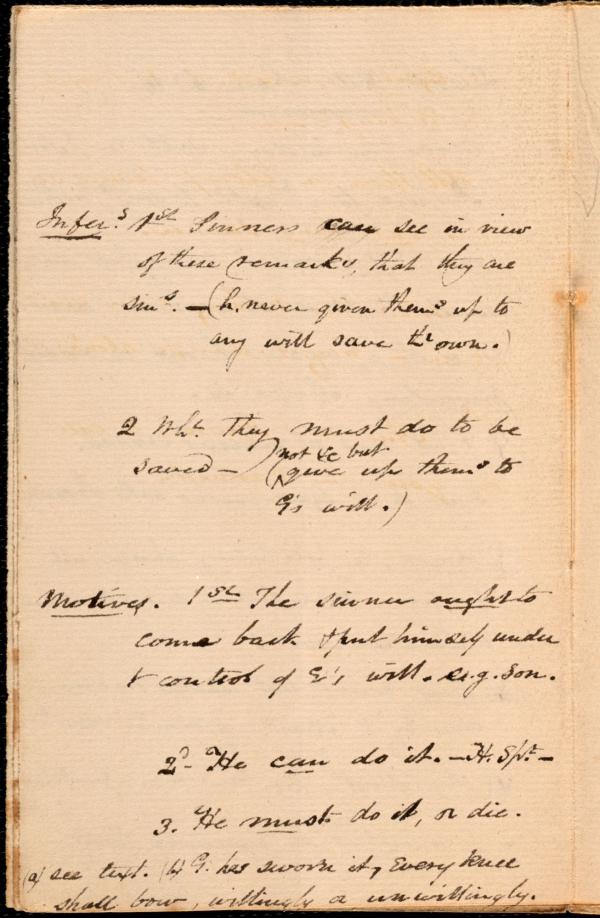 Infer.s 1st Sinners can see in view
of these remarks, that they are
sins. — (h. never given thems up to
any will save thr own.)
2 Wht. They must do to be
saved — (not &c but
give up thems to
G's will.)
Motives. 1st The sinner ought to
come back & put himself under
t control of G's will. e.g. son.
2d - He can do it. — H. Spt. —
3. He must do it, or die.
(a) see text. (b) G. has sworn it, Every knee
shall bow, willingly or unwillingly.